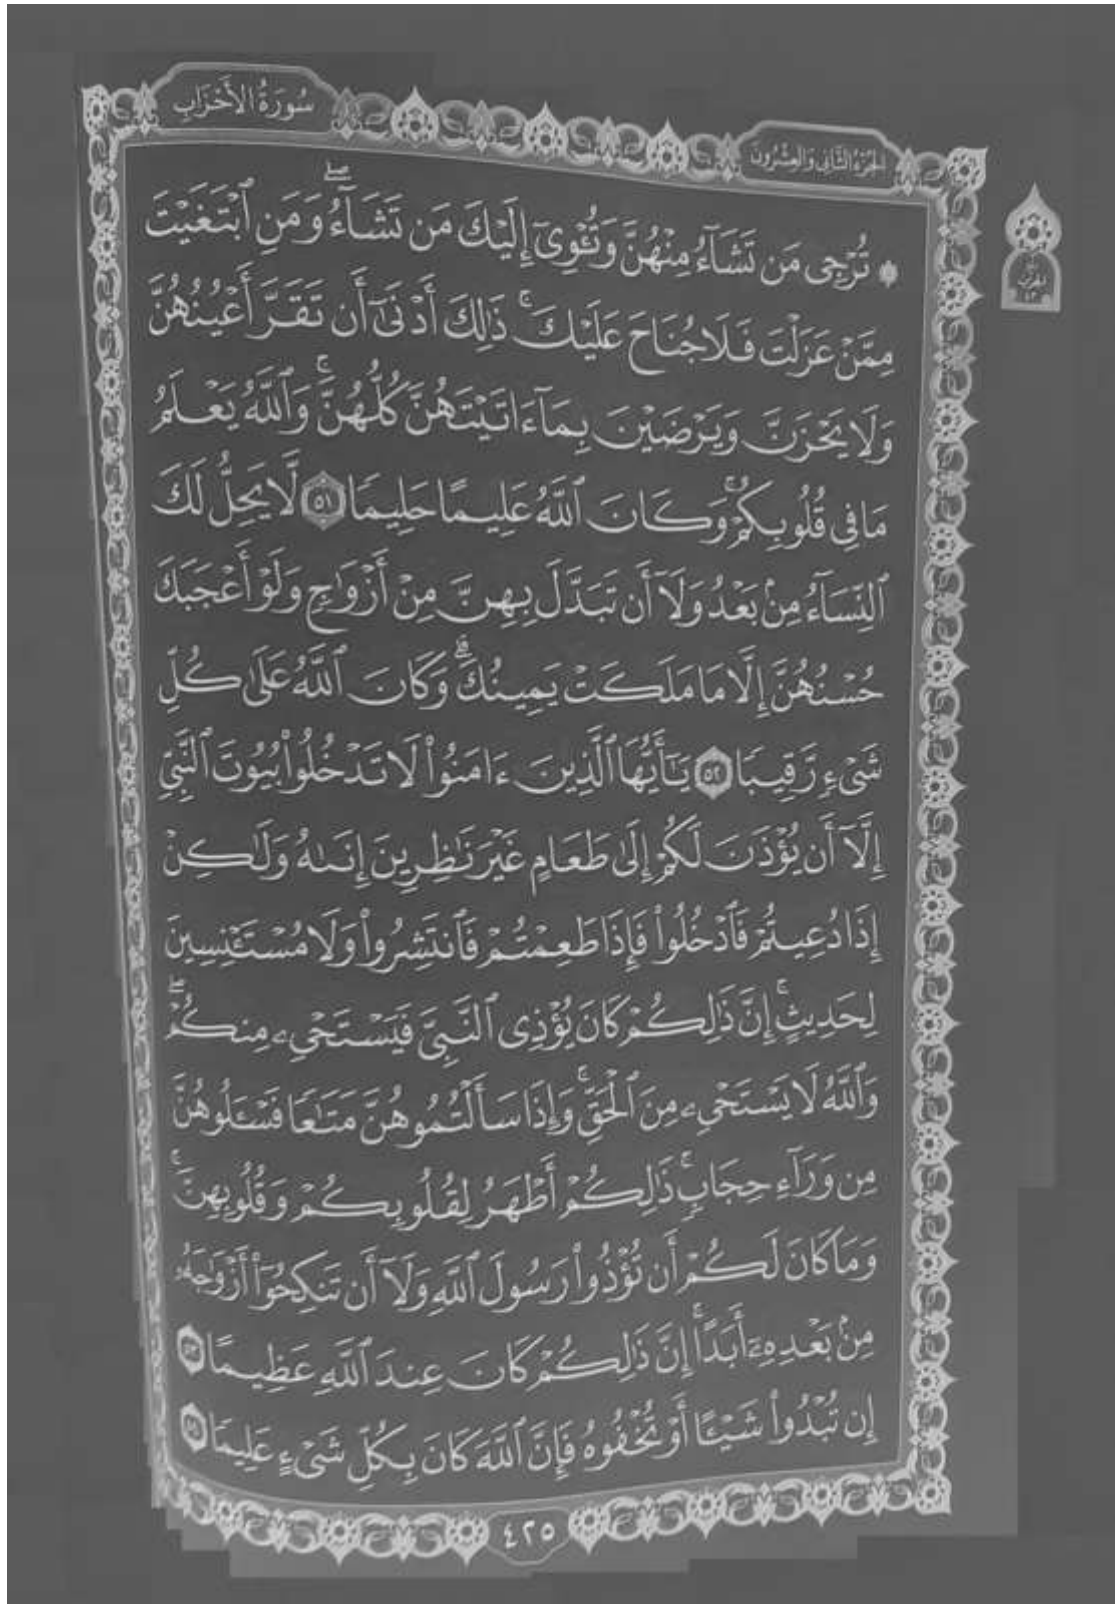 سُورَةُ الأَحْزَابِ
الجُزْءُ الثَّانِي وَالعِشْرُونَ
۞ تُرْجِى مَن تَشَآءُ مِنْهُنَّ وَتُـْٔوِىٓ إِلَيْكَ مَن تَشَآءُۖ وَمَنِ ٱبْتَغَيْتَ
مِمَّنْ عَزَلْتَ فَلَا جُنَاحَ عَلَيْكَۚ ذَٰلِكَ أَدْنَىٰٓ أَن تَقَرَّ أَعْيُنُهُنَّ
وَلَا يَحْزَنَّ وَيَرْضَيْنَ بِمَآ ءَاتَيْتَهُنَّ كُلُّهُنَّۚ وَٱللَّهُ يَعْلَمُ
مَا فِى قُلُوبِكُمْۚ وَكَانَ ٱللَّهُ عَلِيمًا حَلِيمًا ٥١ لَّا يَحِلُّ لَكَ
ٱلنِّسَآءُ مِنۢ بَعْدُ وَلَآ أَن تَبَدَّلَ بِهِنَّ مِنْ أَزْوَٰجٍ وَلَوْ أَعْجَبَكَ
حُسْنُهُنَّ إِلَّا مَا مَلَكَتْ يَمِينُكَۗ وَكَانَ ٱللَّهُ عَلَىٰ كُلِّ
شَىْءٍ رَّقِيبًا ٥٢ يَـٰٓأَيُّهَا ٱلَّذِينَ ءَامَنُوا۟ لَا تَدْخُلُوا۟ بُيُوتَ ٱلنَّبِىِّ
إِلَّآ أَن يُؤْذَنَ لَكُمْ إِلَىٰ طَعَامٍ غَيْرَ نَـٰظِرِينَ إِنَىٰهُ وَلَـٰكِنْ
إِذَا دُعِيتُمْ فَٱدْخُلُوا۟ فَإِذَا طَعِمْتُمْ فَٱنتَشِرُوا۟ وَلَا مُسْتَـْٔنِسِينَ
لِحَدِيثٍۚ إِنَّ ذَٰلِكُمْ كَانَ يُؤْذِى ٱلنَّبِىَّ فَيَسْتَحْىِۦ مِنكُمْۖ
وَٱللَّهُ لَا يَسْتَحْىِۦ مِنَ ٱلْحَقِّۚ وَإِذَا سَأَلْتُمُوهُنَّ مَتَـٰعًا فَسْـَٔلُوهُنَّ
مِن وَرَآءِ حِجَابٍۚ ذَٰلِكُمْ أَطْهَرُ لِقُلُوبِكُمْ وَقُلُوبِهِنَّۚ
وَمَا كَانَ لَكُمْ أَن تُؤْذُوا۟ رَسُولَ ٱللَّهِ وَلَآ أَن تَنكِحُوٓا۟ أَزْوَٰجَهُۥ
مِنۢ بَعْدِهِۦٓ أَبَدًاۚ إِنَّ ذَٰلِكُمْ كَانَ عِندَ ٱللَّهِ عَظِيمًا ٥٣
إِن تُبْدُوا۟ شَيْـًٔا أَوْ تُخْفُوهُ فَإِنَّ ٱللَّهَ كَانَ بِكُلِّ شَىْءٍ عَلِيمًا ٥٤
٤٢٥